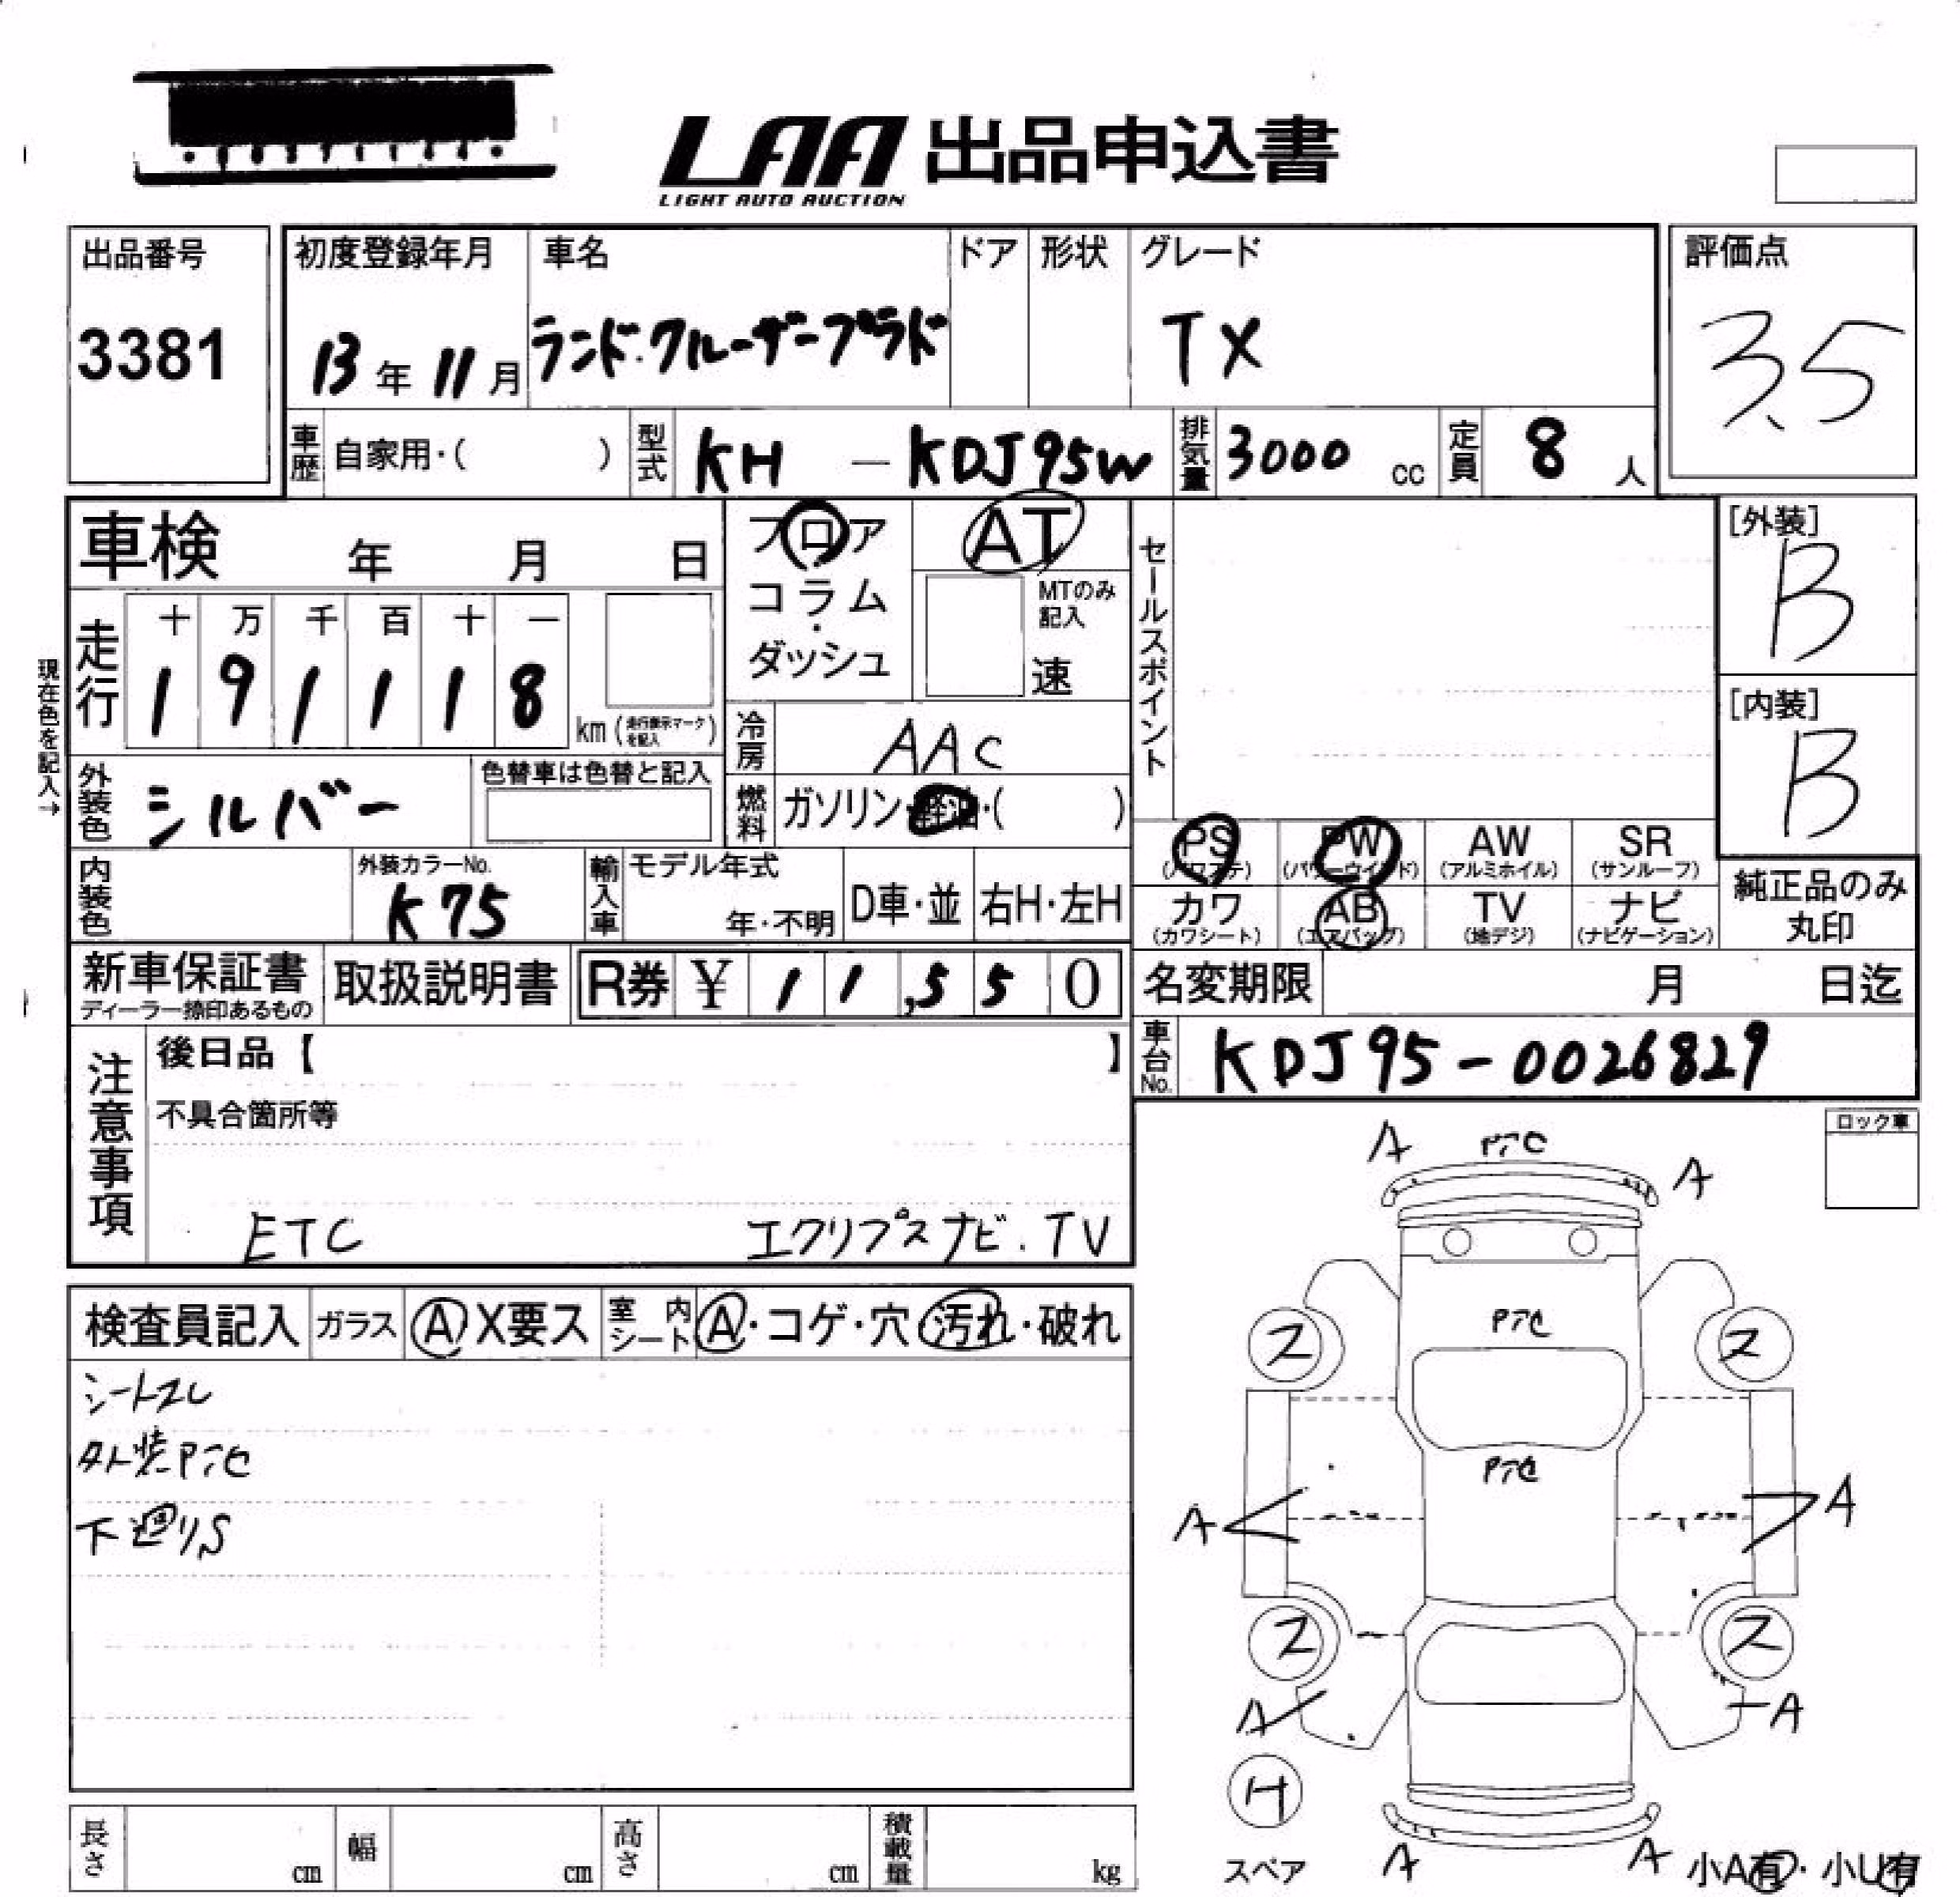 LAA 出品申込書
LIGHT AUTO AUCTION
出品番号
3381
初度登録年月
13年 11月
車名
ランド・クルーザープラド
ドア
形状
グレード
TX
評価点
3.5
車歴
自家用・( )
型式
KH - KDJ95W
排気量
3000 cc
定員
8 人
車検 年 月 日
フロア
コラム
・
ダッシュ
AT
MTのみ
記入
速
セールスポイント
[外装]
B
[内装]
B
現在色を記入→
走行
十 万 千 百 十 一
1 9 1 1 1 8
km (走行表示マークを記入)
冷房
AAC
外装色
シルバー
色替車は色替と記入
燃料
ガソリン・軽油・( )
PS
(パワステ)
PW
(パワーウインド)
AW
(アルミホイル)
SR
(サンルーフ)
カワ
(カワシート)
AB
(エアバッグ)
TV
(地デジ)
ナビ
(ナビゲーション)
純正品のみ
丸印
内装色
外装カラーNo.
K75
輸入車
モデル年式
年・不明
D車・並
右H・左H
新車保証書
ディーラー捺印あるもの
取扱説明書
R券 ¥ 1 1,5 5 0
名変期限 月 日迄
車台No.
KDJ95-0026829
注意事項
後日品【 】
不具合箇所等
ETC エクリプスナビ.TV
ロック車
検査員記入
ガラス
A X要ス
室内シート
A・コゲ・穴・汚れ・破れ
シートスレ
外装Pテ色
下廻りS
A Pテ色 A
Pテ色
ス ス
Pテ色
A A
ス ス
A A
H
スペア
A A
小A有・小U有
長さ cm
幅 cm
高さ cm
積載量 kg